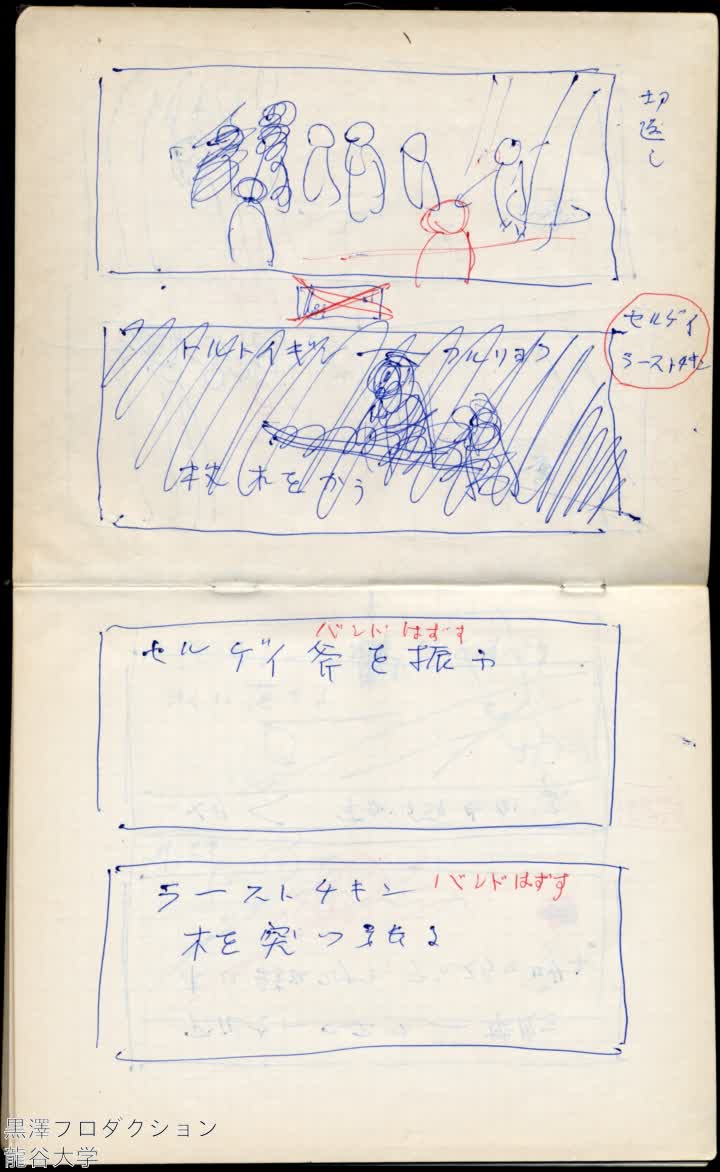 切返し
セルゲイ
ラーストチキン
トルトイギン ー カルリョフ
木をかう
バンドはずす
セルゲイ斧を振う
ラーストチキン バンドはずす
木を突つ
黒澤プロダクション
龍谷大学